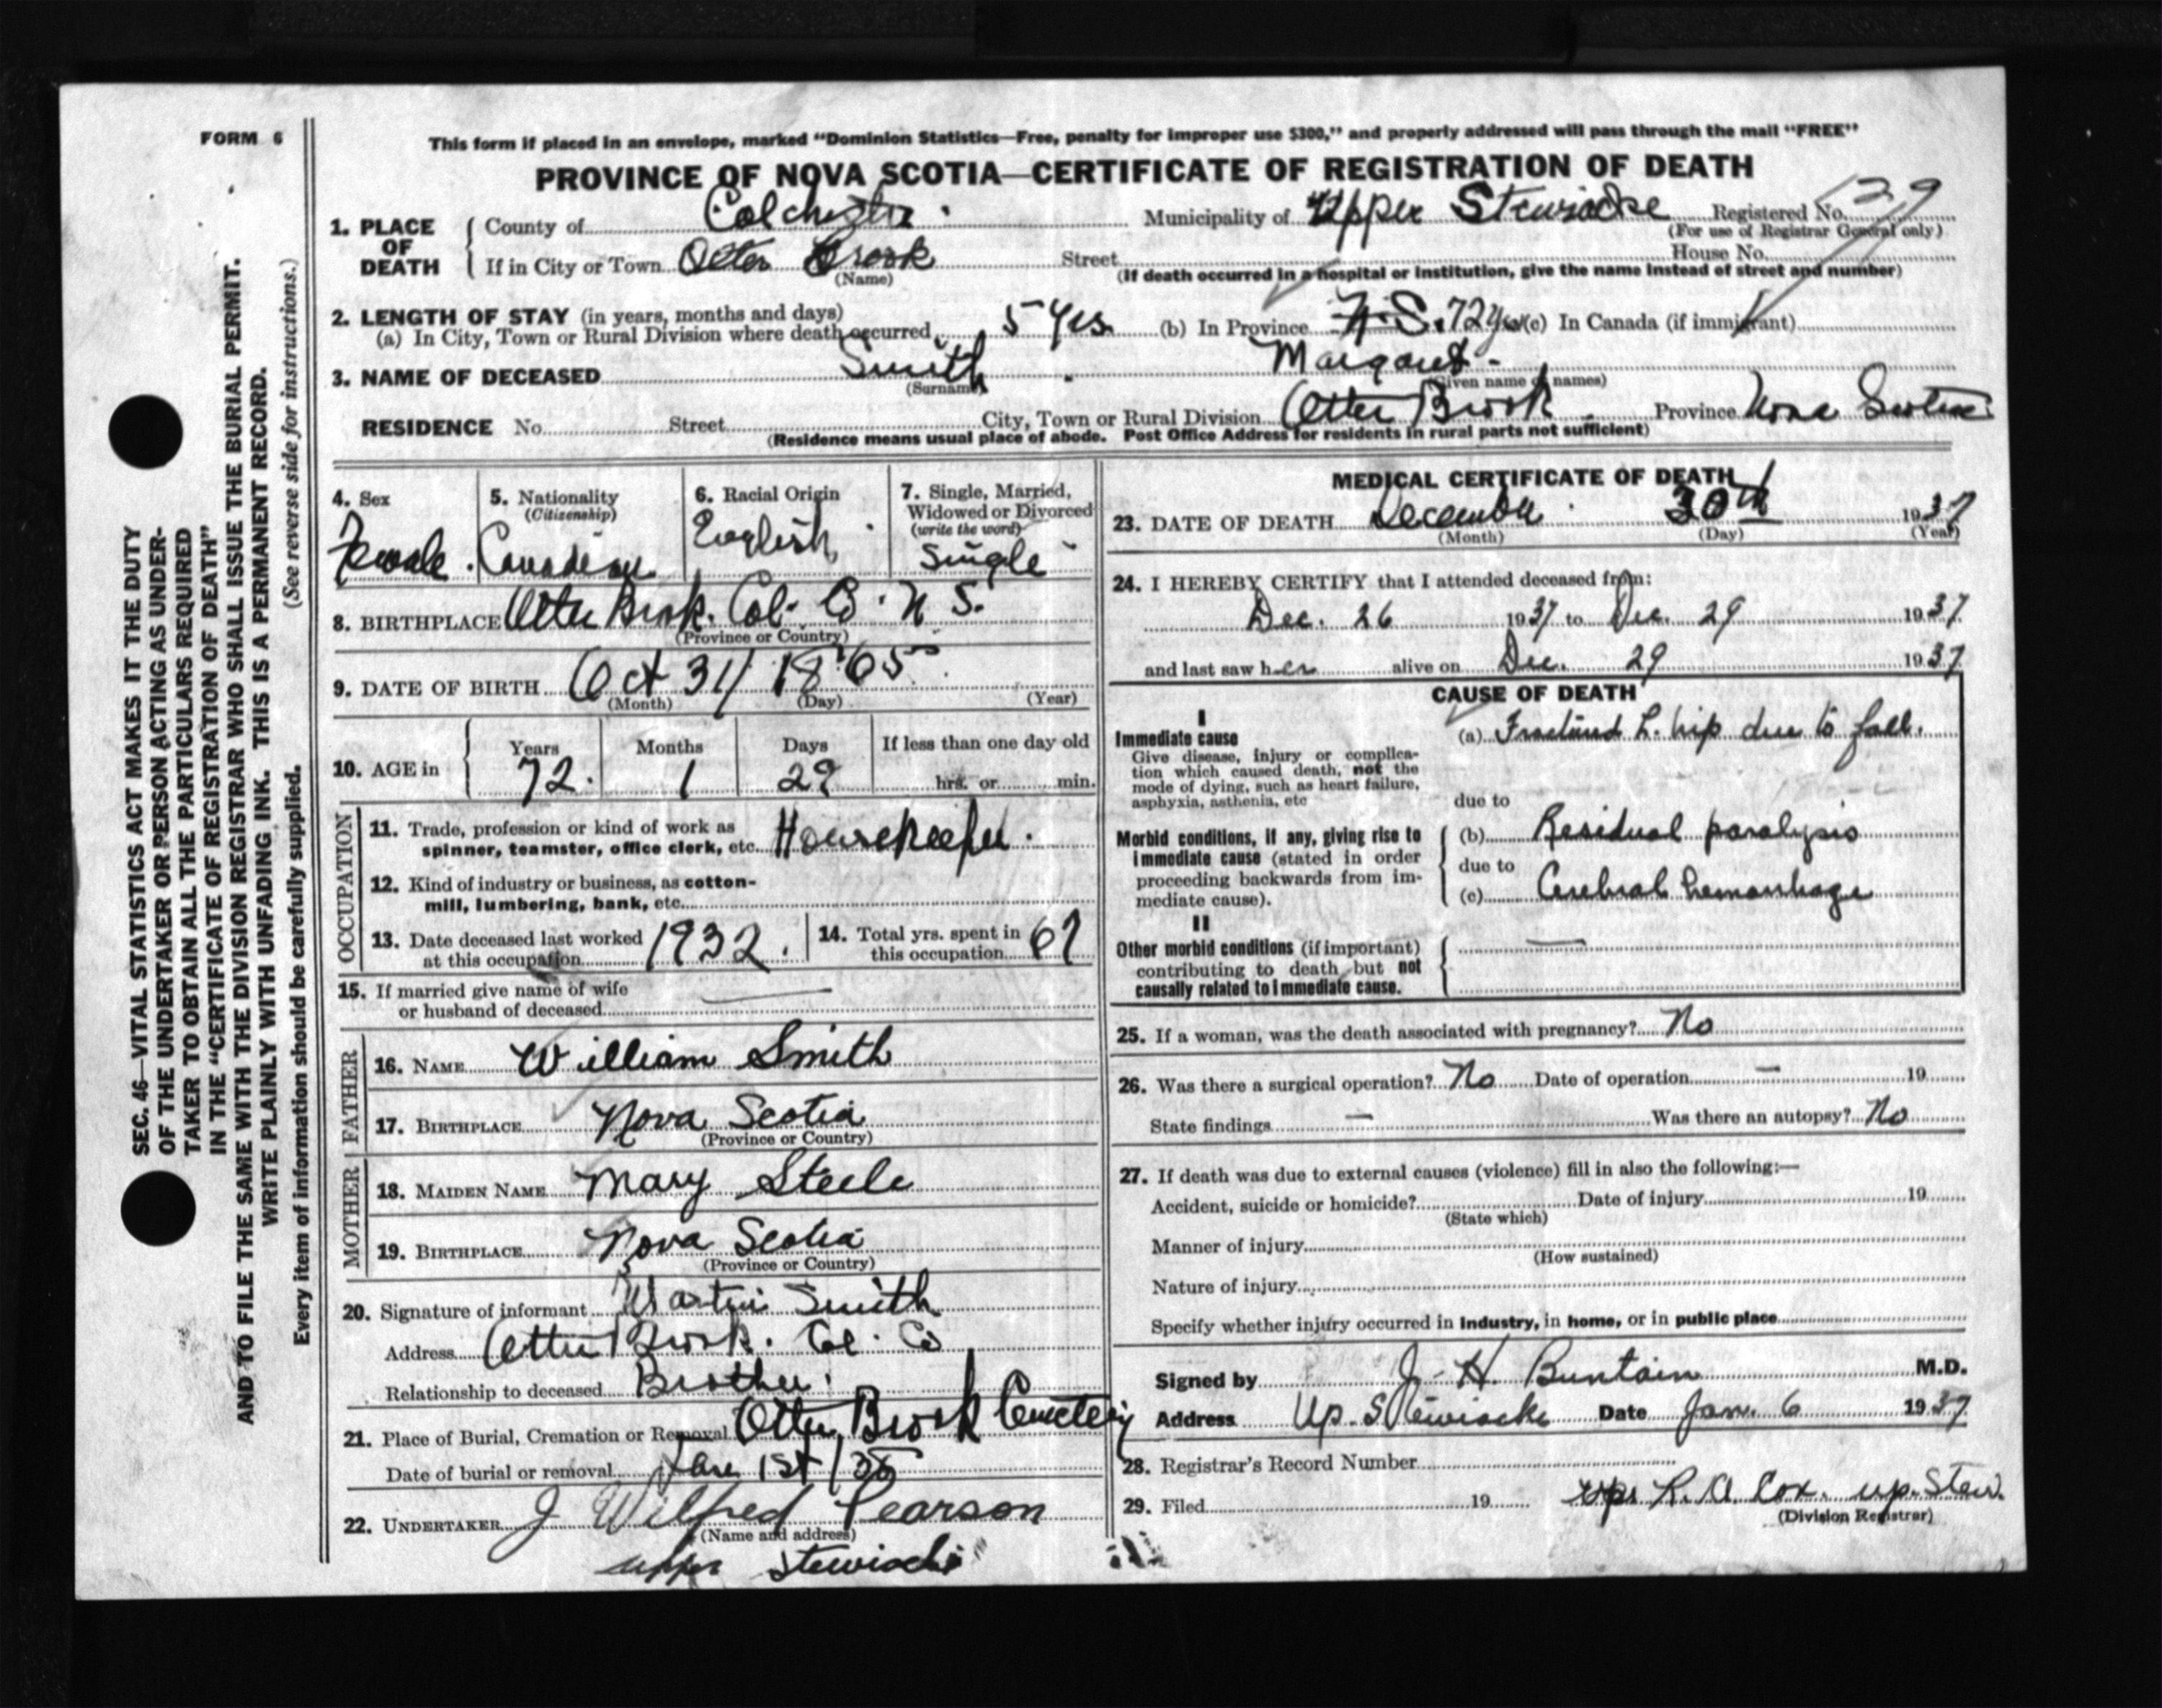 FORM 6
This form if placed in an envelope, marked "Dominion Statistics—Free, penalty for improper use $300," and properly addressed will pass through the mail "FREE"
PROVINCE OF NOVA SCOTIA—CERTIFICATE OF REGISTRATION OF DEATH
1. PLACE OF DEATH County of Colchester Municipality of Upper Stewiacke Registered No.
(For use of Registrar General only)
If in City or Town Otter Brook Street House No.
(Name) (If death occurred in a hospital or institution, give the name instead of street and number)
2. LENGTH OF STAY (in years, months and days)
(a) In City, Town or Rural Division where death occurred 5 yrs. (b) In Province N.S. 72 yrs (c) In Canada (if immigrant)
3. NAME OF DECEASED Smith Margaret
(Surname) (Given name or names)
RESIDENCE No. Street City, Town or Rural Division Otter Brook Province Nova Scotia
(Residence means usual place of abode. Post Office Address for residents in rural parts not sufficient)
SEC. 46—VITAL STATISTICS ACT MAKES IT THE DUTY
OF THE UNDERTAKER OR PERSON ACTING AS UNDER-
TAKER TO OBTAIN ALL THE PARTICULARS REQUIRED
IN THE "CERTIFICATE OF REGISTRATION OF DEATH"
AND TO FILE THE SAME WITH THE DIVISION REGISTRAR WHO SHALL ISSUE THE BURIAL PERMIT.
WRITE PLAINLY WITH UNFADING INK. THIS IS A PERMANENT RECORD.
Every item of information should be carefully supplied. (See reverse side for instructions.)
4. Sex
Female
5. Nationality
(Citizenship)
Canadian
6. Racial Origin
English
7. Single, Married,
Widowed or Divorced
(write the word)
Single
8. BIRTHPLACE Otter Brook. Col. Co. N S.
(Province or Country)
9. DATE OF BIRTH Oct 31/ 1865
(Month) (Day) (Year)
10. AGE in Years Months Days If less than one day old
72 1 29 hrs. or min.
OCCUPATION
11. Trade, profession or kind of work as
spinner, teamster, office clerk, etc. Housekeeper.
12. Kind of industry or business, as cotton-
mill, lumbering, bank, etc.
13. Date deceased last worked
at this occupation 1932.
14. Total yrs. spent in
this occupation 67
15. If married give name of wife
or husband of deceased —
FATHER
16. NAME William Smith
17. BIRTHPLACE Nova Scotia
(Province or Country)
MOTHER
18. MAIDEN NAME Mary Steele
19. BIRTHPLACE Nova Scotia
(Province or Country)
20. Signature of informant Martin Smith
Address Otter Brook. Col. Co
Relationship to deceased Brother.
21. Place of Burial, Cremation or Removal Otter Brook Cemetery
Date of burial or removal Jan 1st/38
22. UNDERTAKER J Wilfred Pearson
(Name and address)
upper Stewiacke
MEDICAL CERTIFICATE OF DEATH
23. DATE OF DEATH December 30th 1937
(Month) (Day) (Year)
24. I HEREBY CERTIFY that I attended deceased from:
Dec. 26 1937 to Dec. 29 1937
and last saw her alive on Dec. 29 1937
CAUSE OF DEATH
I
Immediate cause
Give disease, injury or complica-
tion which caused death, not the
mode of dying, such as heart failure,
asphyxia, asthenia, etc
(a) Fractured L. hip due to fall.
due to
Morbid conditions, if any, giving rise to
immediate cause (stated in order
proceeding backwards from im-
mediate cause).
(b) Residual paralysis
due to
(c) Cerebral hemorrhage
II
Other morbid conditions (if important)
contributing to death but not
causally related to immediate cause.
—
25. If a woman, was the death associated with pregnancy? No
26. Was there a surgical operation? No Date of operation — 19
State findings — Was there an autopsy? No
27. If death was due to external causes (violence) fill in also the following:—
Accident, suicide or homicide? Date of injury 19
(State which)
Manner of injury
(How sustained)
Nature of injury
Specify whether injury occurred in industry, in home, or in public place
Signed by J. H. Buntain M.D.
Address Up. Stewiacke Date Jan. 6 1937
28. Registrar's Record Number
29. Filed 19 R. A Cox. up. Stew.
(Division Registrar)